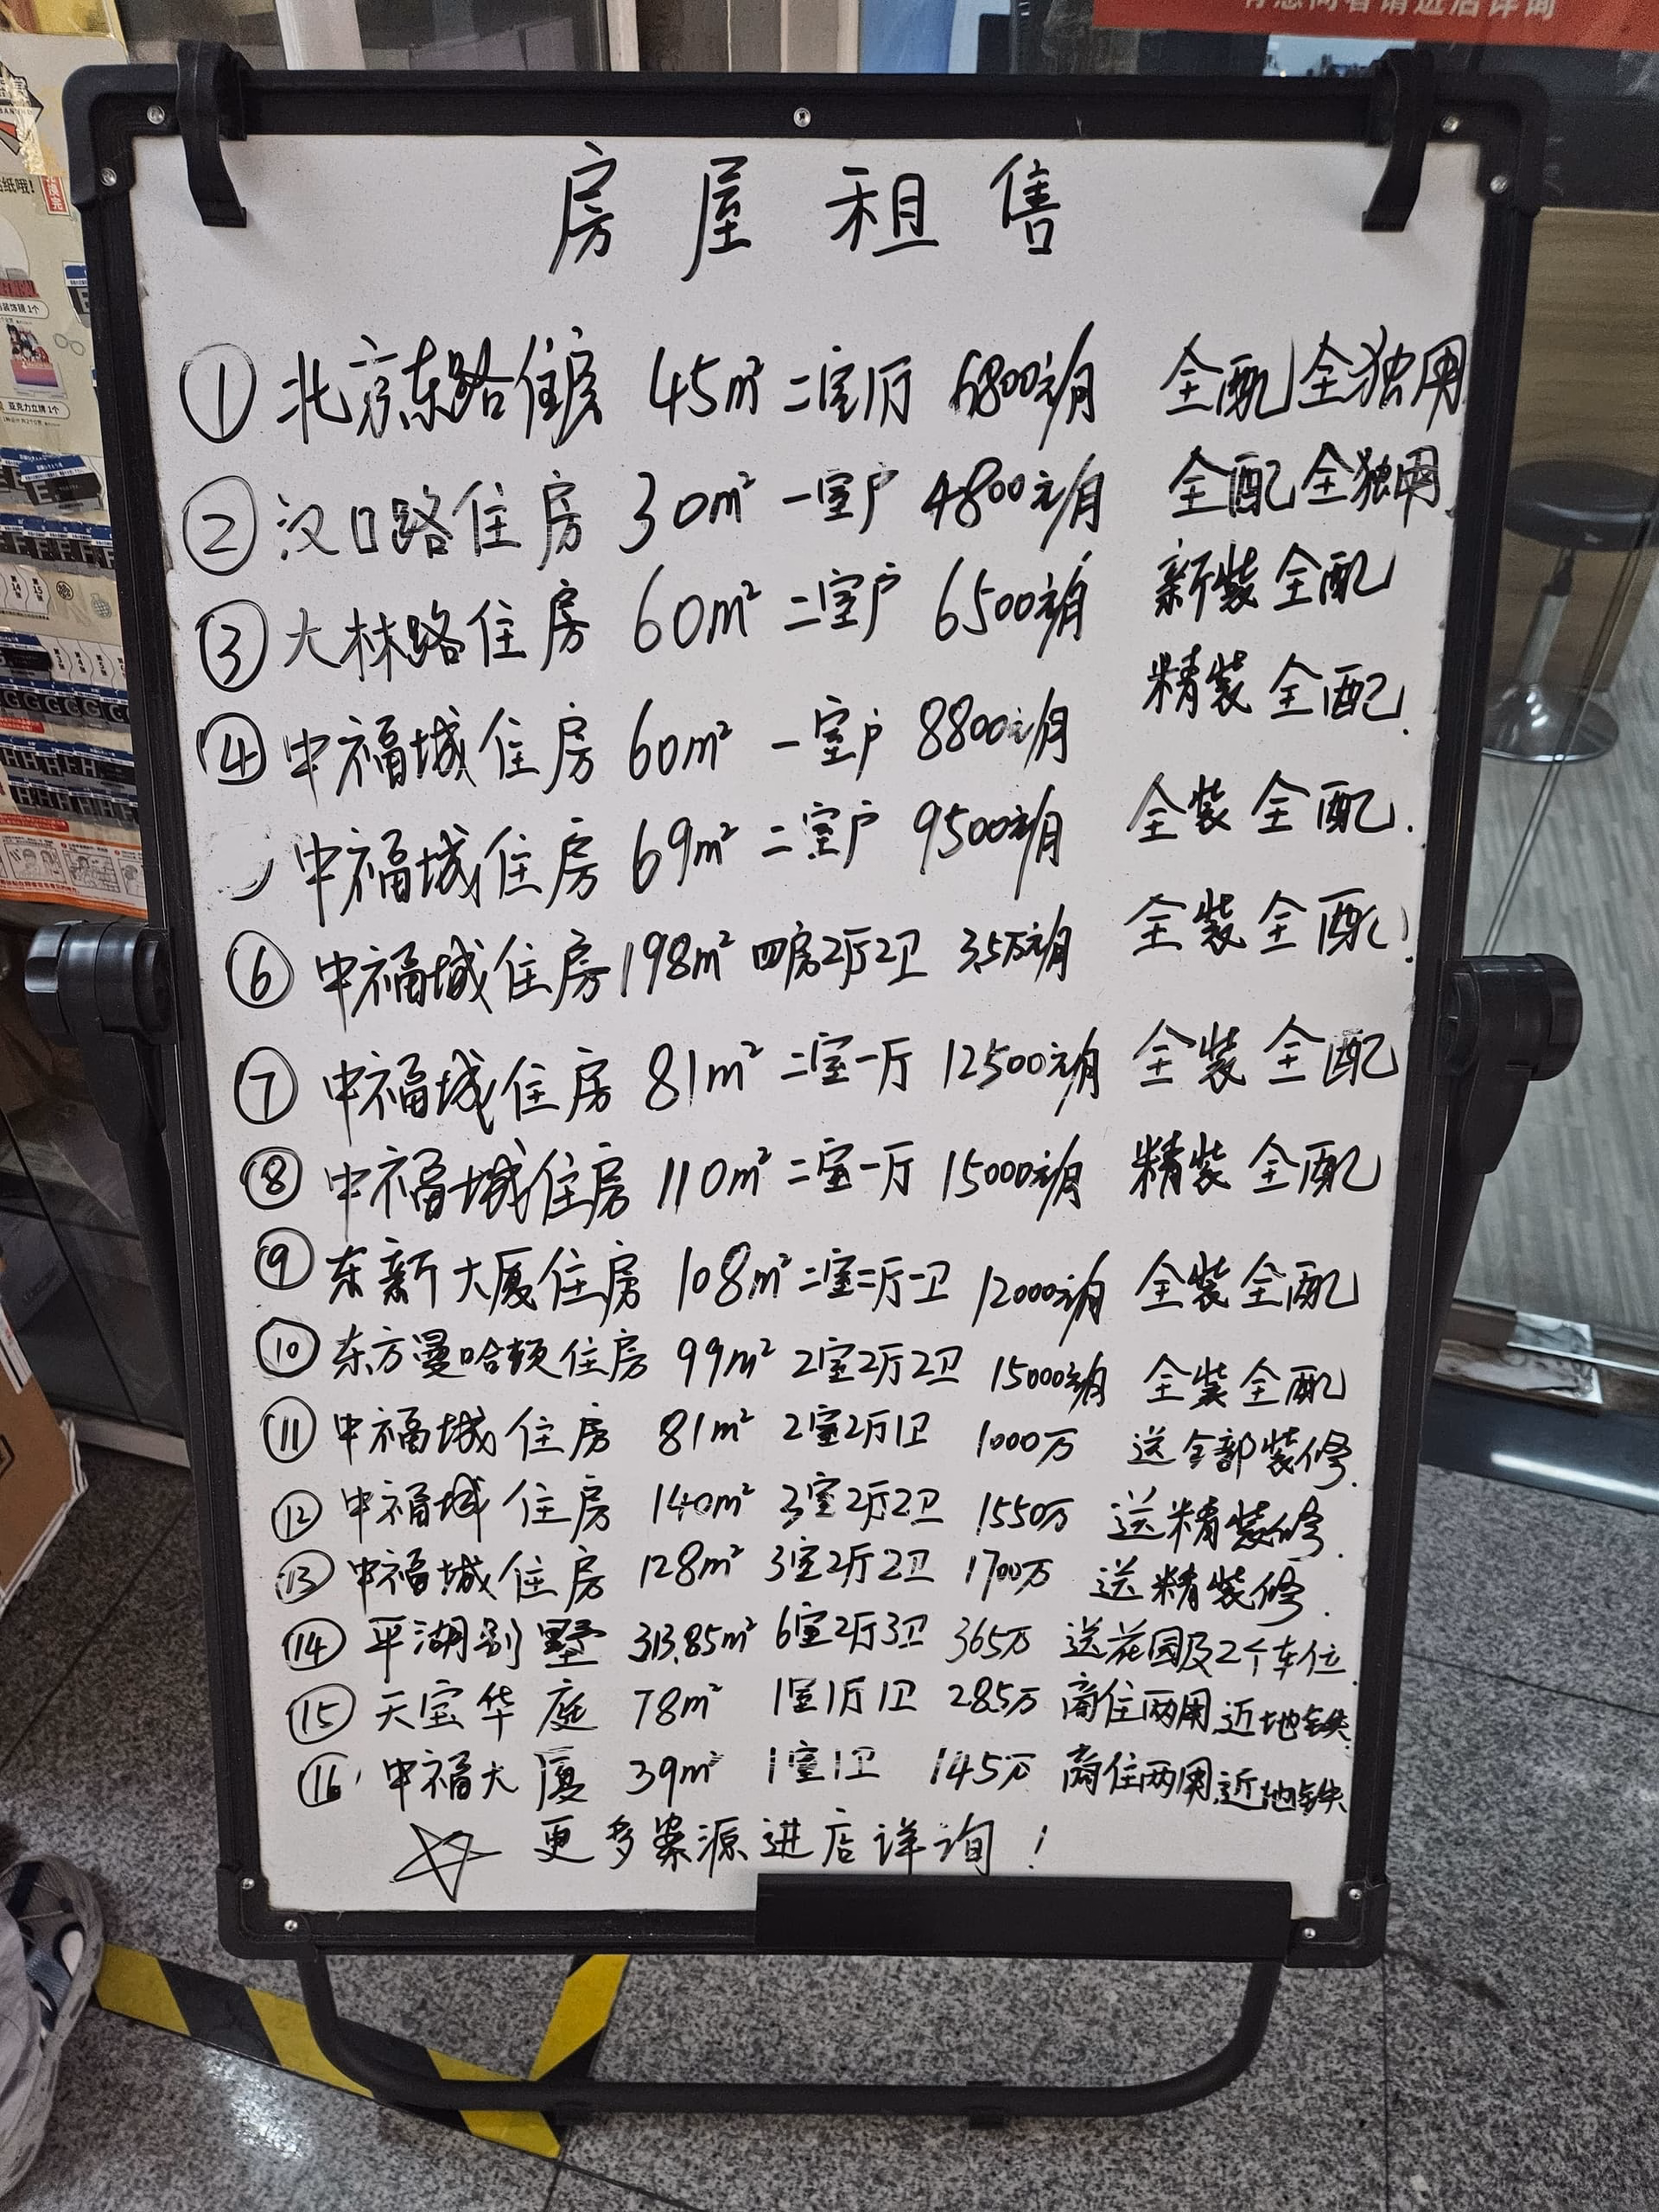 有意向者请进店详询
房屋租售
① 北京东路住房 45m² 二室1厅 6800元/月 全配全独用
② 汉口路住房 30m² 一室户 4800元/月 全配全独用
③ 大林路住房 60m² 二室户 6500元/月 新装全配
④ 中福城住房 60m² 一室户 8800元/月 精装全配.
中福城住房 69m² 二室户 9500元/月 全装全配.
⑥ 中福城住房 198m² 四房2厅2卫 3.5万元/月 全装全配!
⑦ 中福城住房 81m² 二室一厅 12500元/月 全装全配
⑧ 中福城住房 110m² 二室一厅 15000元/月 精装全配
⑨ 东新大厦住房 108m² 二室二厅一卫 12000元/月 全装全配
⑩ 东方曼哈顿住房 99m² 2室2厅2卫 15000元/月 全装全配
⑪ 中福城住房 81m² 2室2厅1卫 1000万 送全部装修.
⑫ 中福城住房 140m² 3室2厅2卫 1550万 送精装修.
⑬ 中福城住房 128m² 3室2厅2卫 1700万 送精装修.
⑭ 平湖别墅 313.85m² 6室2厅3卫 365万 送花园及2个车位.
⑮ 天宝华庭 78m² 1室1厅1卫 285万 商住两用近地铁.
⑯ 中福大厦 39m² 1室1卫 145万 商住两用近地铁
更多案源进店详询!
装饰镜 1个
亚克力立牌 1个